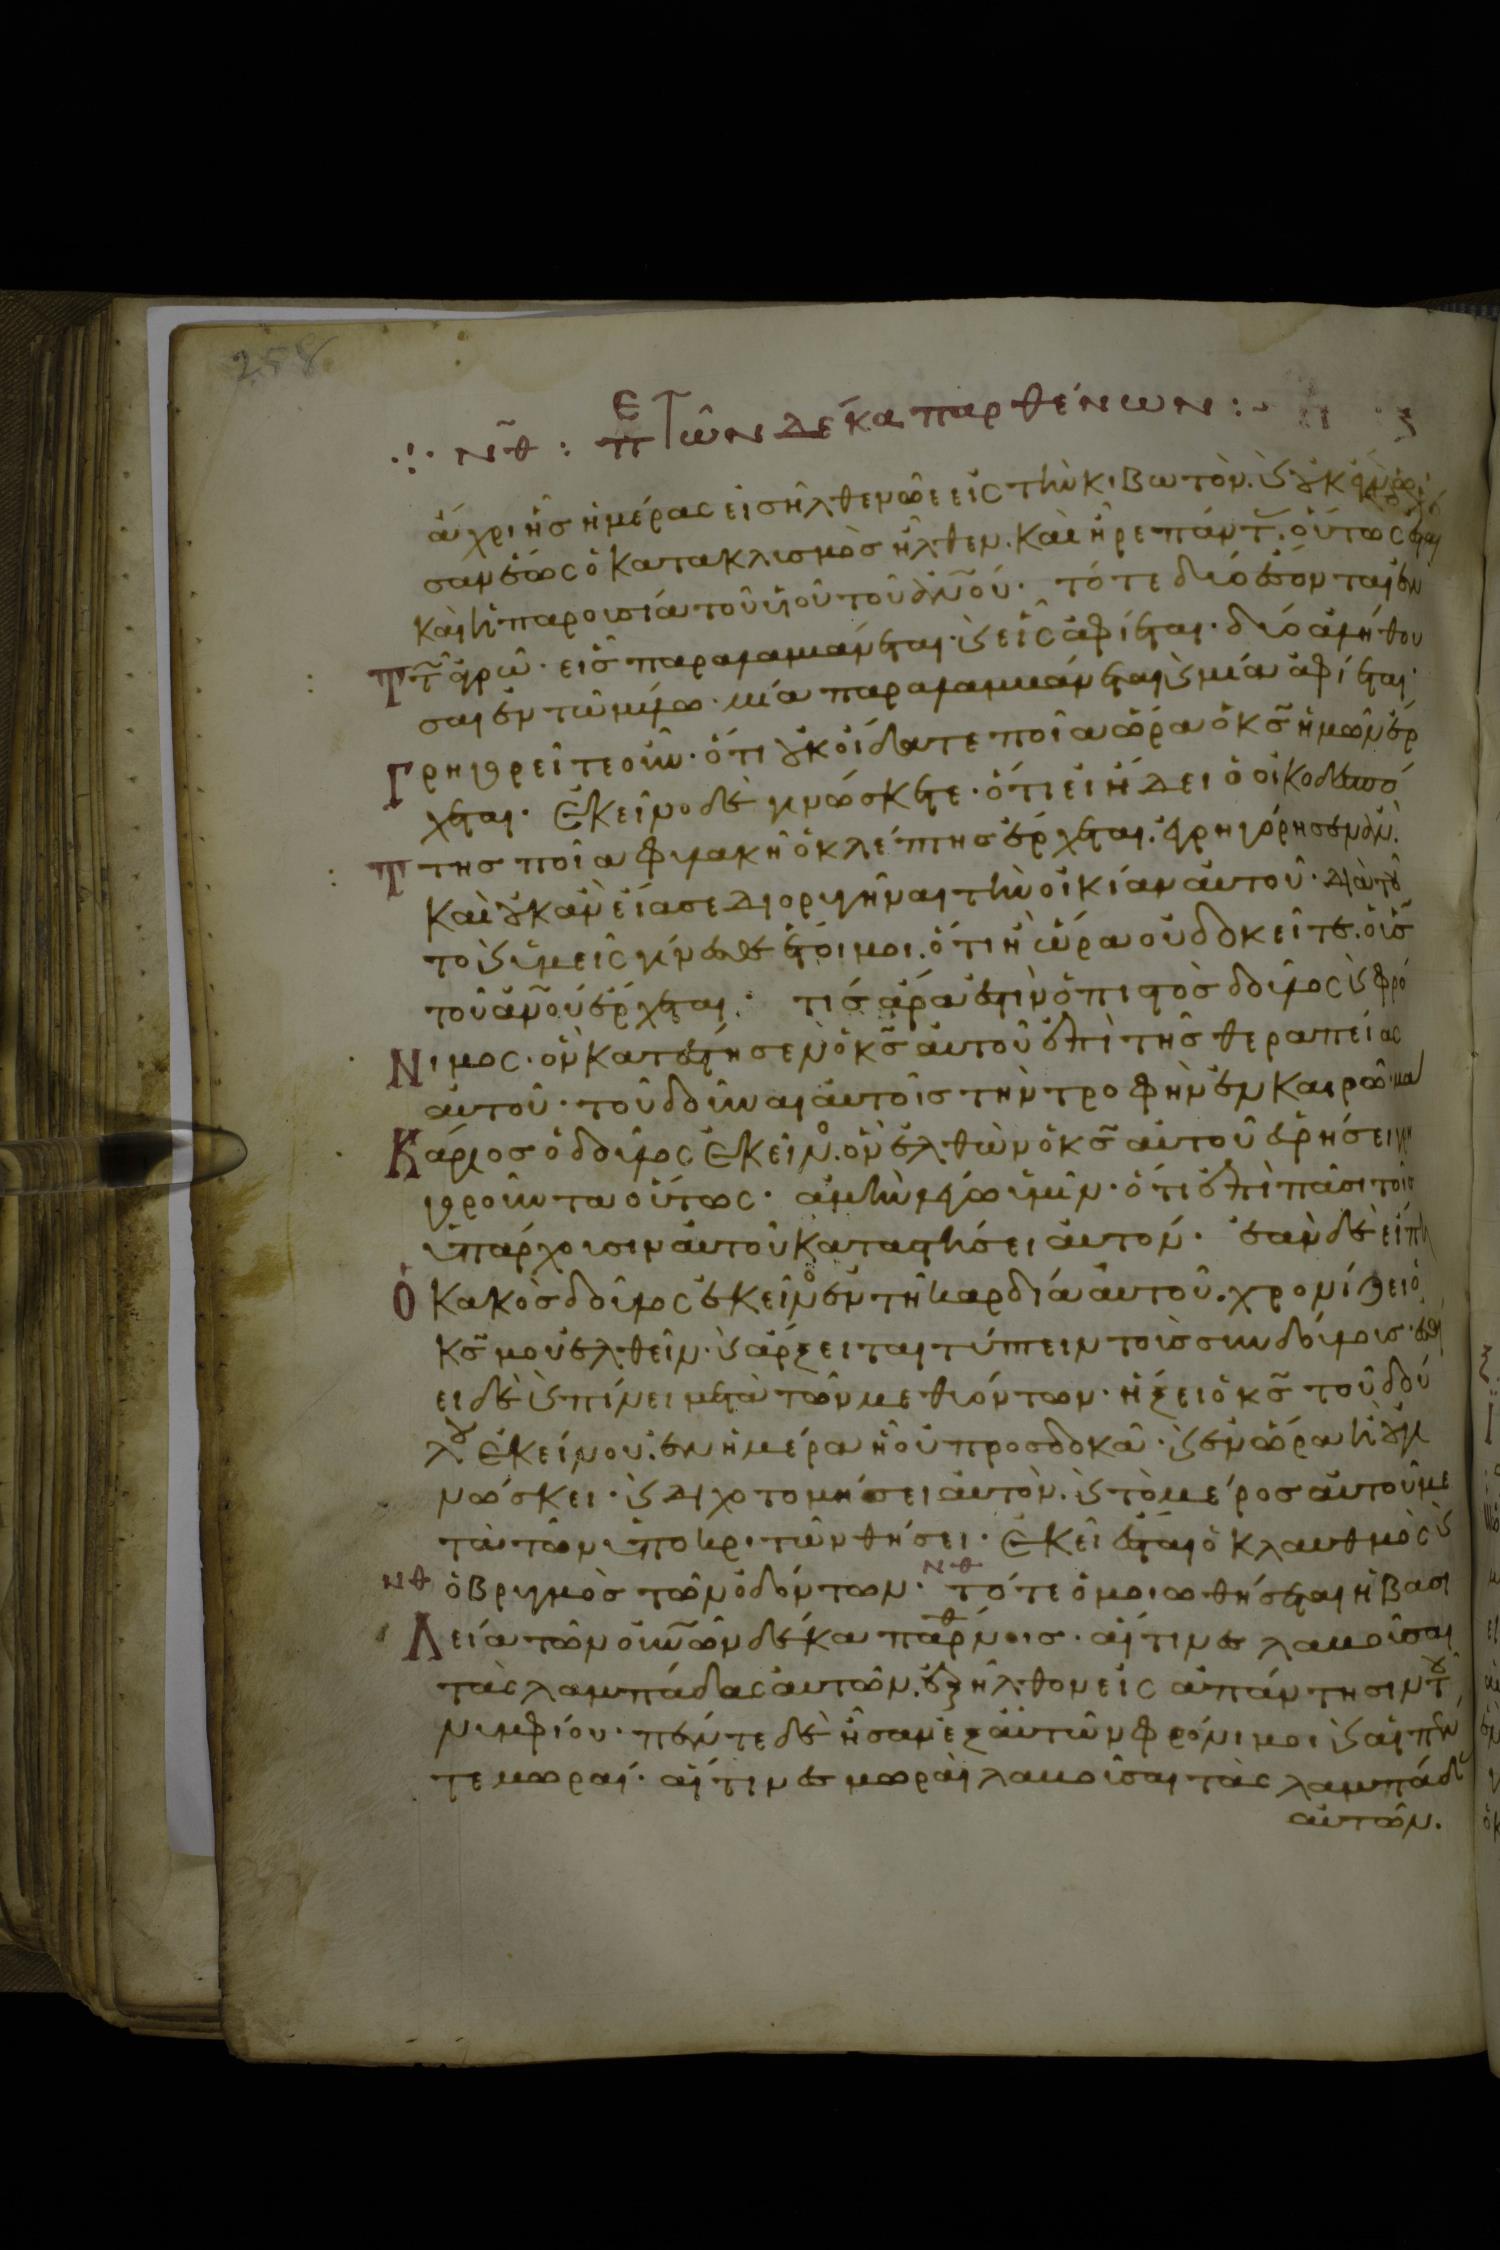 258
νθ: περὶ τῶν δέκα παρθένων:
ἄχρι ἧς ἡμέρας εἰσῆλθεν νῶε εἰς τὴν κιβωτόν. ϗ οὐκ ἔγνω
σαν ἕως ὁ κατακλισμὸς ἦλθεν. καὶ ἦρε πάντ. οὕτως ἔσται
καὶ ἡ παρουσία τοῦ υἱοῦ τοῦ ἀνου. τότε δύο ἔσονται ἐν
τ ἀγρῶ. εἷς παραλαμβάνεται. ϗ εἷς ἀφίεται. δύο ἀλήθου
σαι ἐν τῶ μύλω. μία παραλαμβάνεται ϗ μία ἀφίεται.
Γρηγορεῖτε οὖν. ὅτι οὐκ οἴδατε ποῖα ὥρα ὁ κς ἡμῶν ἔρ
χεται. ἐκεῖνο δὲ γινώσκετε. ὅτι εἰ ἤδει ὁ οἰκοδεσπό
της ποῖα φυλακῆ ὁ κλέπτης ἔρχεται. ἐγρηγόρησεν ἄν.
καὶ οὐκ ἂν εἴασε διορυγῆναι τὴν οἰκίαν αὐτοῦ. διὰ τοῦ
το ϗ ὑμεῖς γίνεσθε ἕτοιμοι. ὅτι ἡ ὥρα οὐ δοκεῖτε. ὁ υς
τοῦ ἀνου ἔρχεται. τίς ἄρα ἐστὶν ὁ πιστὸς δοῦλος ϗ φρό
Νιμος. ὃν κατέστησεν ὁ κς αὐτοῦ ἐπὶ τῆς θεραπείας
αὐτοῦ. τοῦ δοῦναι αὐτοῖς τὴν τροφὴν ἐν καιρῶ. μα
Κάριος ὁ δοῦλος ἐκεῖνος. ὃν ἐλθὼν ὁ κς αὐτοῦ εὑρήσει γρη
γοροῦντα οὕτως. ἀμὴν λέγω ὑμῖν. ὅτι ἐπὶ πᾶσι τοῖς
ὑπάρχουσιν αὐτοῦ καταστήσει αὐτόν. ἐὰν δὲ εἴπη
Ὁ κακὸς δοῦλος ἐκεῖνος ἐν τῆ καρδία αὐτοῦ. χρονίζει ὁ
κς μου ἐλθεῖν. ϗ ἄρξεται τύπτειν τοὺς συνδούλους. ἐσθί
ει δὲ ϗ πίνει μετὰ τῶν μεθυόντων. ἥξει ὁ κς τοῦ δού
λου ἐκείνου. ἐν ἡμέρα ἧ οὐ προσδοκᾶ. ϗ ἐν ὥρα ἧ οὐ γι
νώσκει. ϗ διχοτομήσει αὐτόν. ϗ τὸ μέρος αὐτοῦ με
τὰ τῶν ὑποκριτῶν θήσει. ἐκεῖ ἔσται ὁ κλαυθμὸς ϗ
νθ ὁ βρυγμὸς τῶν ὀδόντων. νθ τότε ὁμοιωθήσεται ἡ βασι
Λεία τῶν οὐνῶν δέκα παρθένοις. αἵτινες λαβοῦσαι
τὰς λαμπάδας αὐτῶν. ἐξῆλθον εἰς ἀπάντησιν τοῦ
νυμφίου. πέντε δὲ ἦσαν ἐξ αὐτῶν φρόνιμοι ϗ αἱ πέν
τε μωραί. αἵτινες μωραὶ λαβοῦσαι τὰς λαμπάδ
αὐτῶν.